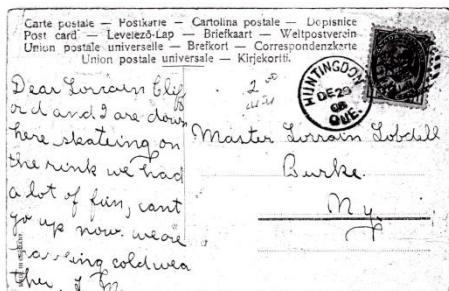 Carte postale — Postkarte — Cartolina postale — Dopisnice
Post card — Levelező-Lap — Briefkaart — Weltpostverein
Union postale universelle — Brefkort — Correspondenzkarte
Union postale universale — Kirjekortti.
Dear Lorrain Cliff
ord and I are down
here skateing on
the rink we had
a lot of fun, cant
go up now. we are
having cold wea
ther. L M
HUNTINGDON
DE 29
08
QUE.
Master Lorrain Lobdell
Burke.
Ny.